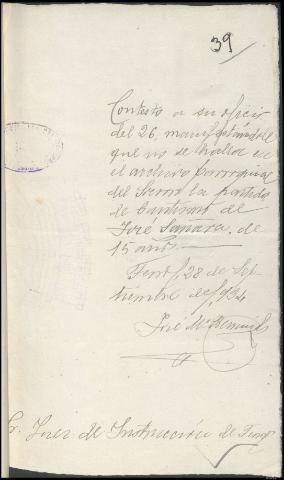 39
Contesto a su oficio
del 26, manifestándole
que no se halla en
el archivo parroquial
del la partida
de bautismo de
José de
15 años.
28 de Sep-
tiembre de 1934
José Mª
Sr. Juez de Instrucción de